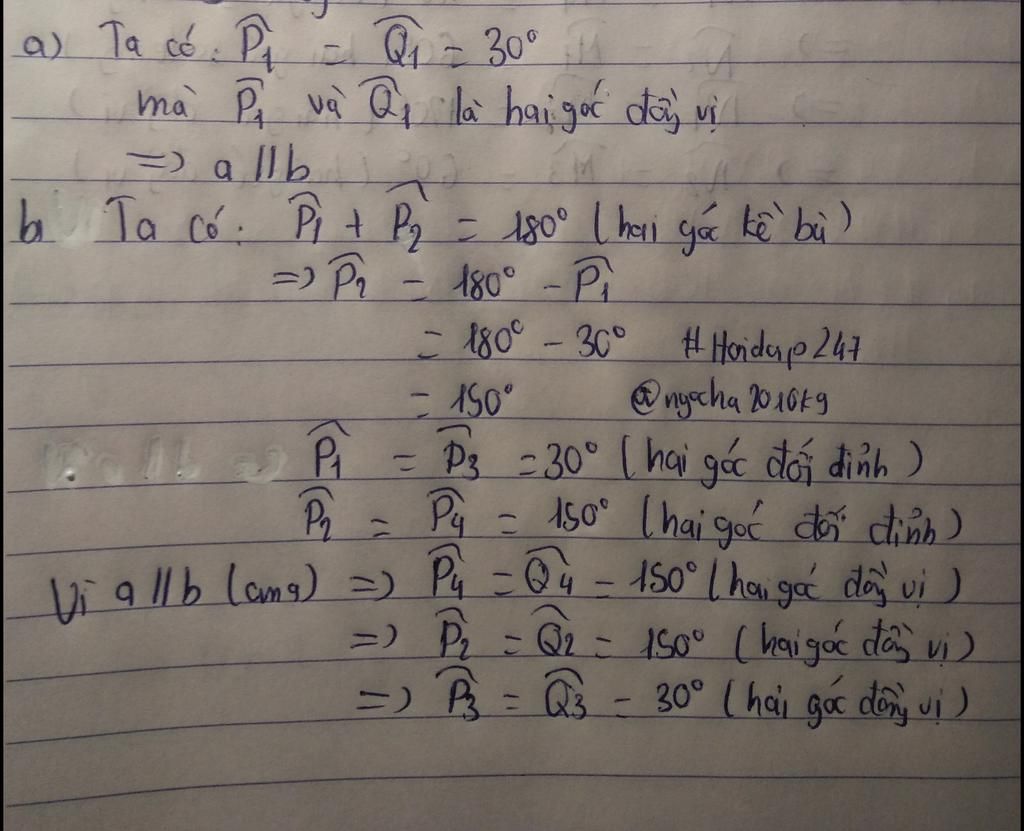 a) Ta có: P̂₁ = Q̂₁ = 30°
mà P̂₁ và Q̂₁ là hai góc đồng vị
=> a // b
b, Ta có: P̂₁ + P̂₂ = 180° (hai góc kề bù)
=> P̂₂ = 180° - P̂₁
= 180° - 30° #Hoidap247
= 150° @ngocha2010kg
P̂₁ = P̂₃ = 30° (hai góc đối đỉnh)
P̂₂ = P̂₄ = 150° (hai góc đối đỉnh)
Vì a // b (cma) => P̂₄ = Q̂₄ = 150° (hai góc đồng vị)
=> P̂₂ = Q̂₂ = 150° (hai góc đồng vị)
=> P̂₃ = Q̂₃ = 30° (hai góc đồng vị)